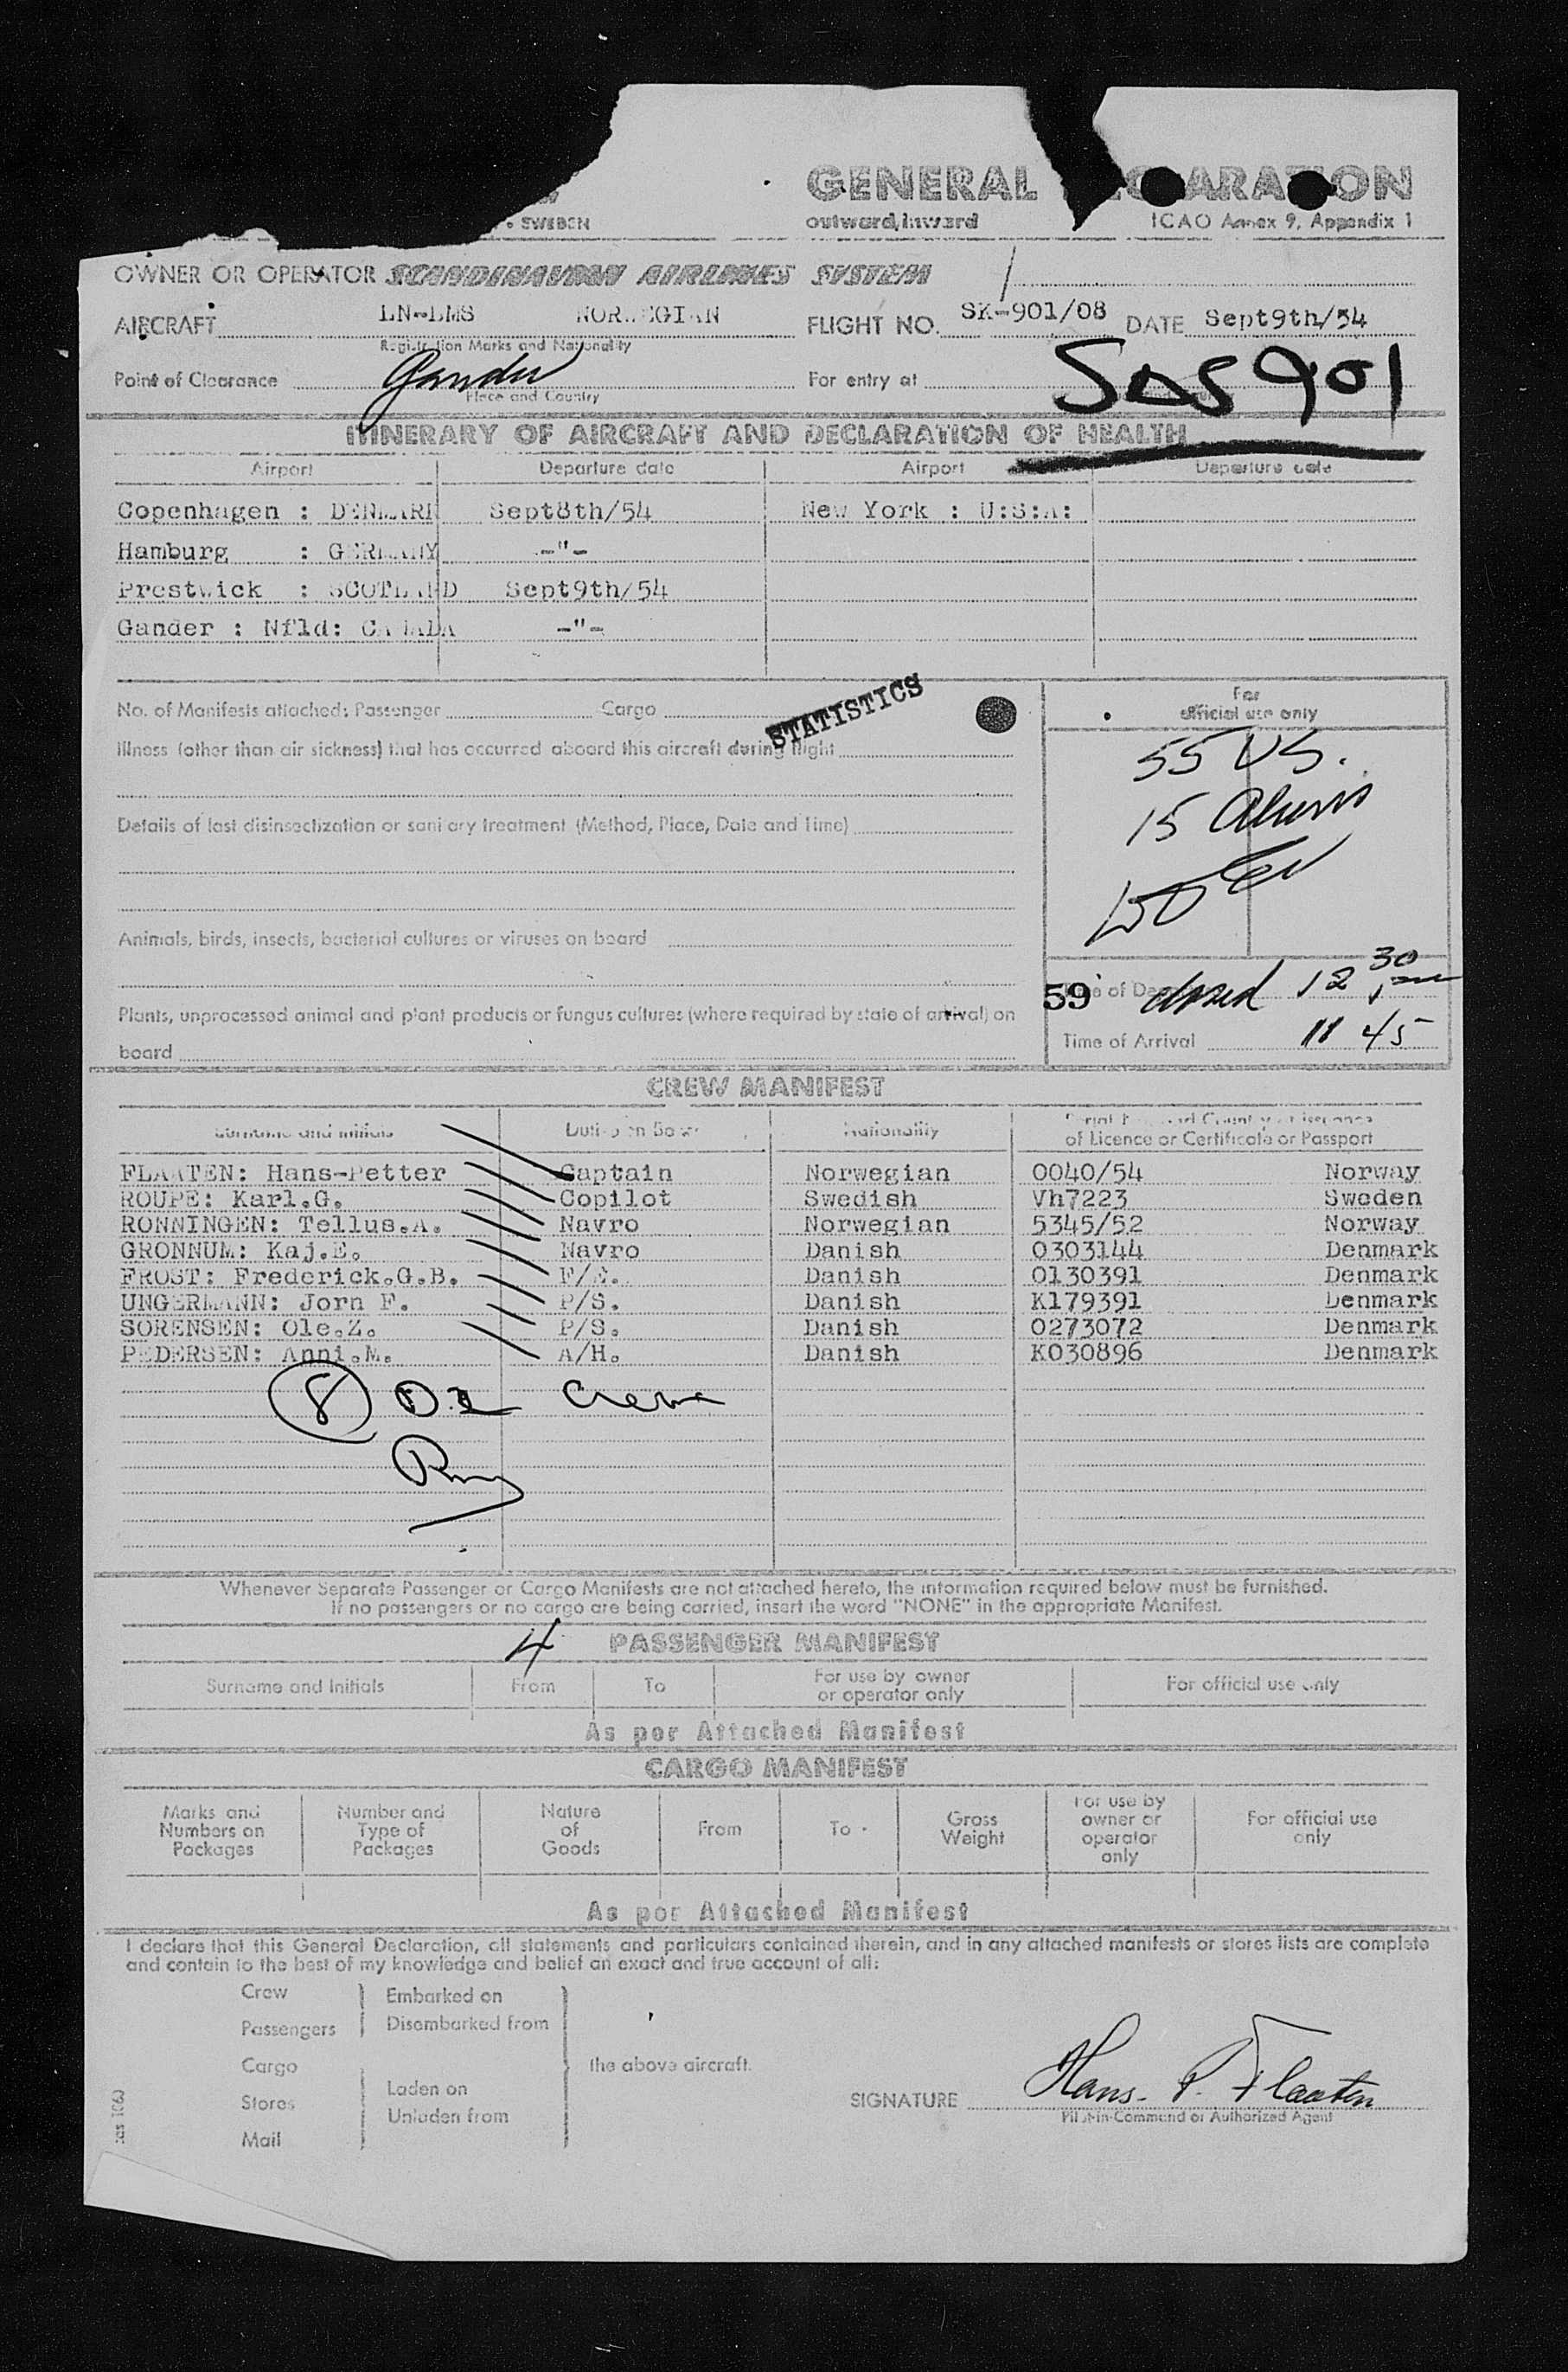 GENERAL
SWEDEN outward/inward ICAO Annex 9, Appendix 1
OWNER OR OPERATOR SCANDINAVIAN AIRLINES SYSTEM
AIRCRAFT LN-LMS NORWEGIAN FLIGHT NO. SK-901/08 DATE Sept9th/54
Registration Marks and Nationality
Point of Clearance Gander For entry at SAS 901
Place and Country
ITINERARY OF AIRCRAFT AND DECLARATION OF HEALTH
Airport Departure date Airport Departure date
Copenhagen : DENMARK Sept8th/54 New York : U:S:A:
Hamburg : GERMANY -"-
Prestwick : SCOTLAND Sept9th/54
Gander : Nfld: CANADA -"-
No. of Manifests attached: Passenger Cargo
STATISTICS
For official use only
Illness (other than air sickness) that has occurred aboard this aircraft during flight
55 US.
15 Aliens
Details of last disinsectization or sanitary treatment (Method, Place, Date and Time)
Animals, birds, insects, bacterial cultures or viruses on board
59 closed 12 30
Plants, unprocessed animal and plant products or fungus cultures (where required by state of arrival) on
board
Time of Arrival 11 45
CREW MANIFEST
Surname and Initials Duties on Board Nationality Serial No. and Country of issuance
of Licence or Certificate or Passport
FLAATEN: Hans-Petter Captain Norwegian 0040/54 Norway
ROUPE: Karl.G. Copilot Swedish Vh7223 Sweden
RONNINGEN: Tellus.A. Navro Norwegian 5345/52 Norway
GRONNUM: Kaj.E. Navro Danish 0303144 Denmark
FROST: Frederick.G.B. F/E. Danish 0130391 Denmark
UNGERMANN: Jorn F. P/S. Danish K179391 Denmark
SORENSEN: Ole.Z. P/S. Danish 0273072 Denmark
PEDERSEN: Anni.M. A/H. Danish K030896 Denmark
8 Crew
Whenever Separate Passenger or Cargo Manifests are not attached hereto, the information required below must be furnished.
If no passengers or no cargo are being carried, insert the word "NONE" in the appropriate Manifest.
4 PASSENGER MANIFEST
Surname and Initials From To For use by owner or operator only For official use only
As per Attached Manifest
CARGO MANIFEST
Marks and Numbers on Packages Number and Type of Packages Nature of Goods From To Gross Weight For use by owner or operator only For official use only
As per Attached Manifest
I declare that this General Declaration, all statements and particulars contained therein, and in any attached manifests or stores lists are complete
and contain to the best of my knowledge and belief an exact and true account of all:
Crew Embarked on
Passengers Disembarked from
Cargo the above aircraft.
Laden on
Stores
Unladen from
Mail
SIGNATURE Hans. P. Flaaten
Pilot-in-Command or Authorized Agent